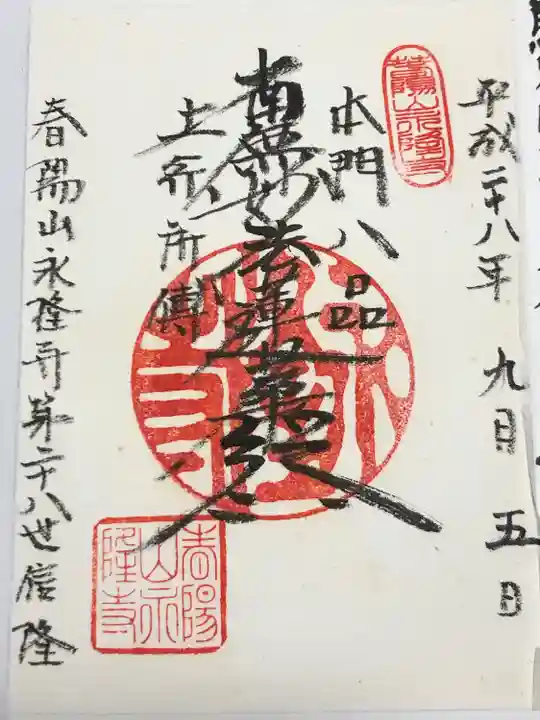 平成二十八年 九月 五日
本門八品
南無妙法蓮華経
上行所傳
春陽山永隆寺第二十八世信隆
春陽山永隆寺
春陽山永隆寺